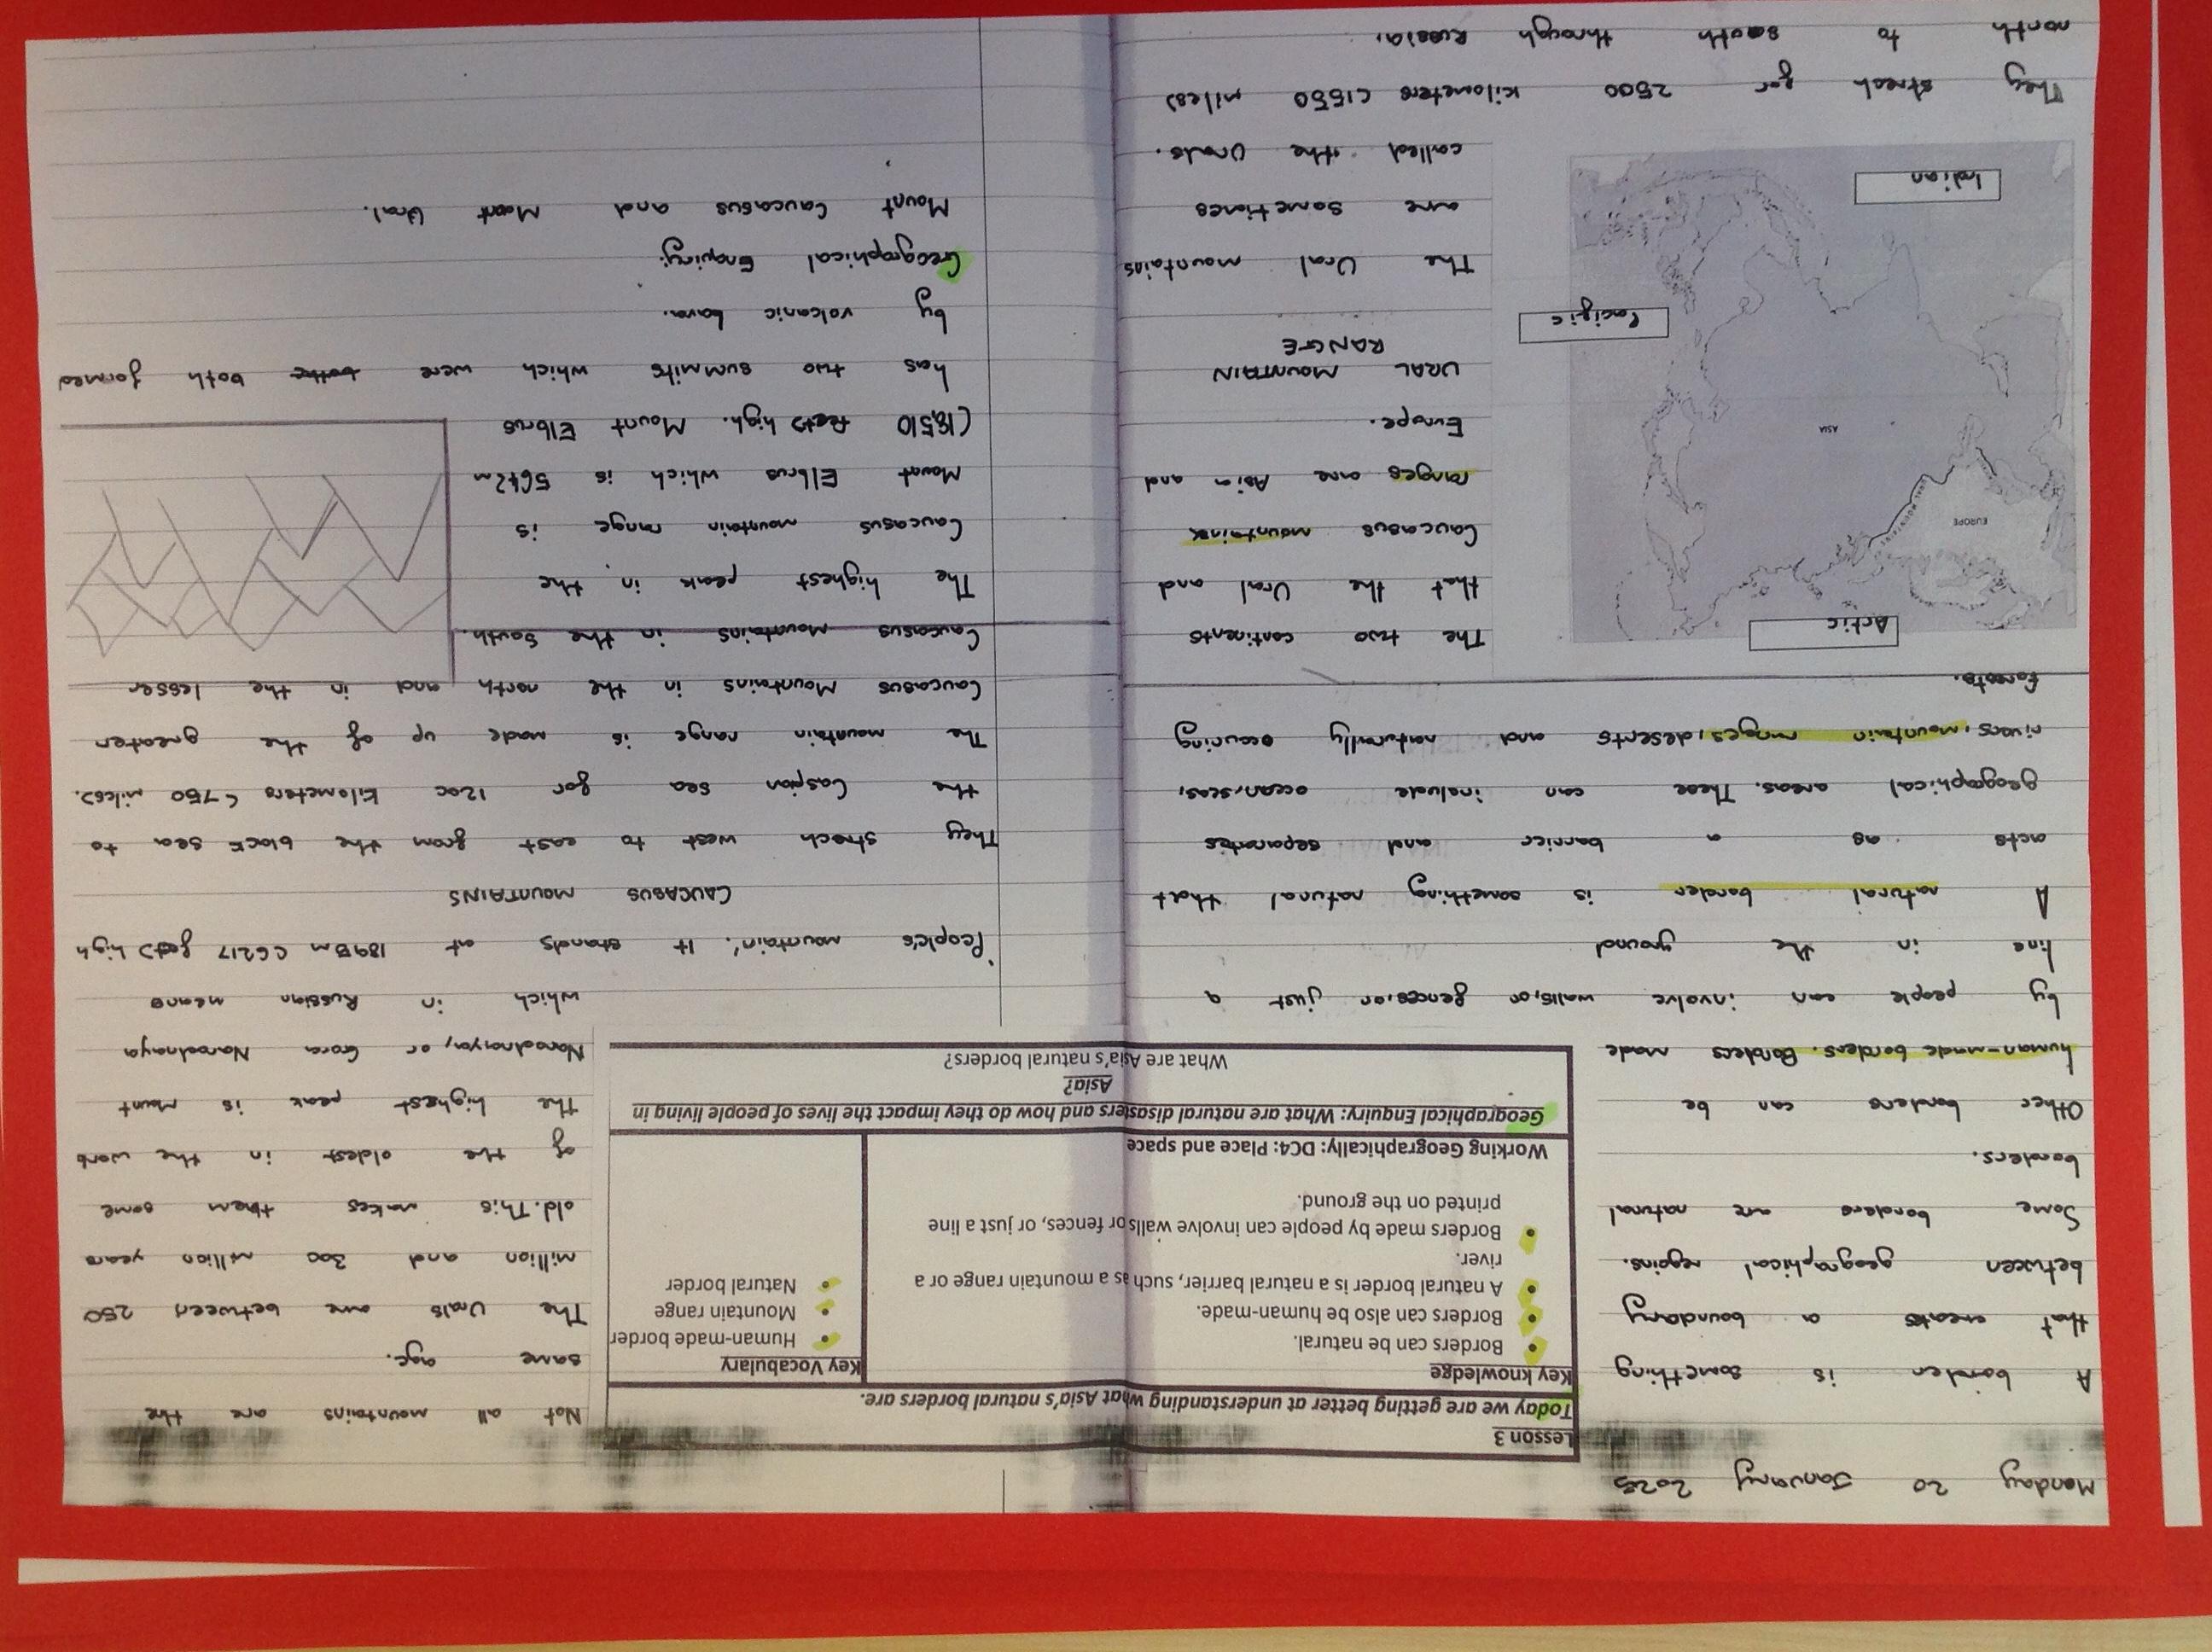 Monday 20 January 2025
Lesson 3
Today we are getting better at understanding what Asia's natural borders are.
Key knowledge
Borders can be natural.
Borders can also be human-made.
A natural border is a natural barrier, such as a mountain range or a
river.
Borders made by people can involve walls or fences, or just a line
printed on the ground.
Working Geographically: DC4: Place and space
Key Vocabulary
Human-made border
Mountain range
Natural border
Geographical Enquiry: What are natural disasters and how do they impact the lives of people living in
Asia?
What are Asia's natural borders?
A border is something
that creats a boundary
between geographical regoins.
Some borders are natural
borders.
Other borders can be
human-made borders. Borders made
by people can involve walls, or fences, or just a
line in the ground
A natural border is something natural that
acts as a barrier and separates
geographical areas. These can include ocean, seas,
rivers, mountain ranges, deserts and naturally occuring
forests.
Actic
EUROPE
MOUNTAINS
ASIA
Pacific
Indian
The two continents
that the Ural and
Caucasus mountains
ranges are Asia and
Europe.
URAL MOUNTAIN
RANGE
The Ural mountains
are sometimes
called the Urals.
They strech for 2500 kilometers (1550 miles)
north to south through Russia.
Not all mountains are the
same age.
The Urals are between 250
million and 300 million years
old. This makes them some
of the oldest in the world
The highest peak is Mount
Narodnaya, or Gora Narodnaya
which in Russian means
'People's mountain'. It stands at 1895m (6217 feet) high
CAUCASUS MOUNTAINS
They strech west to east from the black sea to
the Caspian sea for 1200 kilometers (750 miles).
The mountain range is made up of the greater
Caucasus Mountains in the north and in the lesser
Caucasus Mountains in the South.
The highest peak in the
Caucasus mountain range is
Mount Elbrus which is 5642m
(18,510 feet) high. Mount Elbrus
has two summits which were both formed
by volcanic lava.
Geographical Enquiry:
Mount Caucasus and Mount Ural.